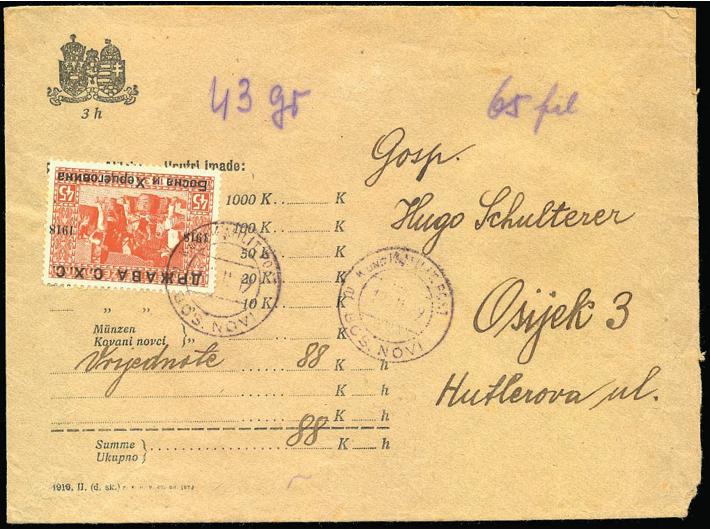 3 h
43 gr
65 fil
Unutri imade:
Босна и Херцеговина
45 45
1918 1918
ДРЖАВА С.Х.С.
1000 K K
100 K K
50 K K
20 K K
10 K K
„ „
Münzen
Kovani novci, } „
Vrijednote 88 K h
K h
K h
Summe
Ukupno } 88 K h
1916, II. (d. sk.)
BOS. NOVI
BOS. NOVI
Gosp.
Hugo Schulterer
Osijek 3
Hutlerova ul.